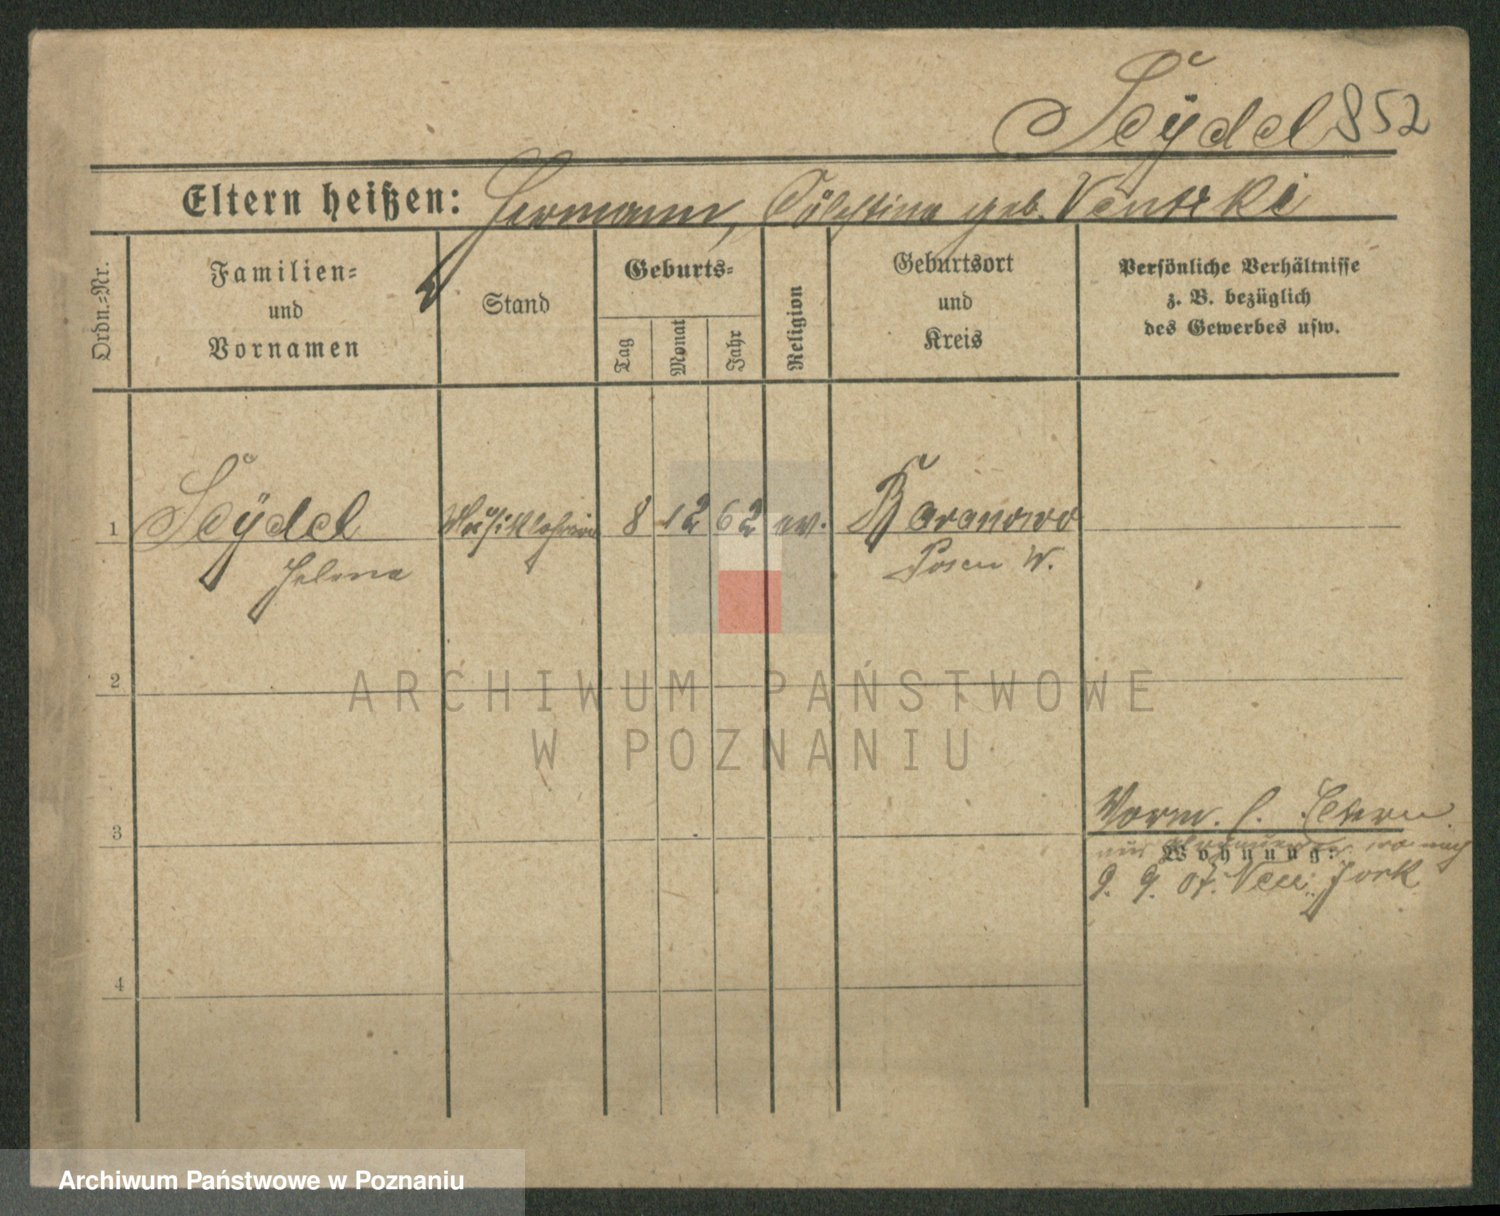 Seÿdel 852
Eltern heißen: Hermann, Cölestine geb. Ventzki
Ordn.-Nr.
Familien-
und
Vornamen
Stand
Geburts-
Tag
Monat
Jahr
Religion
Geburtsort
und
Kreis
Persönliche Verhältnisse
z. B. bezüglich
des Gewerbes usw.
1 Seÿdel Musiklehrerin 8 12 62 ev. Baranowo
Helene Posen W.
2
3
Vorm.
Wohnung:
9. 9. 07. New York
4
ARCHIWUM PAŃSTWOWE
W POZNANIU
Archiwum Państwowe w Poznaniu